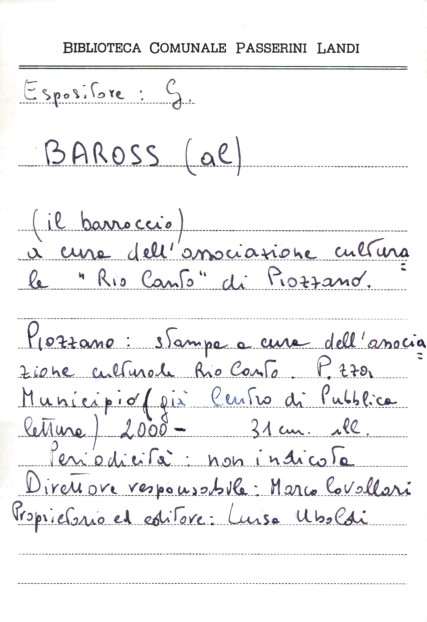 BIBLIOTECA COMUNALE PASSERINI LANDI
Espositore : G.
BAROSS (al)
(il barroccio)
a cura dell'associazione cultura
le " Rio Canto" di Piozzano.
Piozzano : stampa a cura dell'associa
zione culturale Rio Canto . P.zza
Municipio (già Centro di Pubblica
lettura) 2000 - 31 cm. ill.
Periodicità : non indicata
Direttore responsabile : Marco Cavallari
Proprietario ed editore : Luisa Uboldi